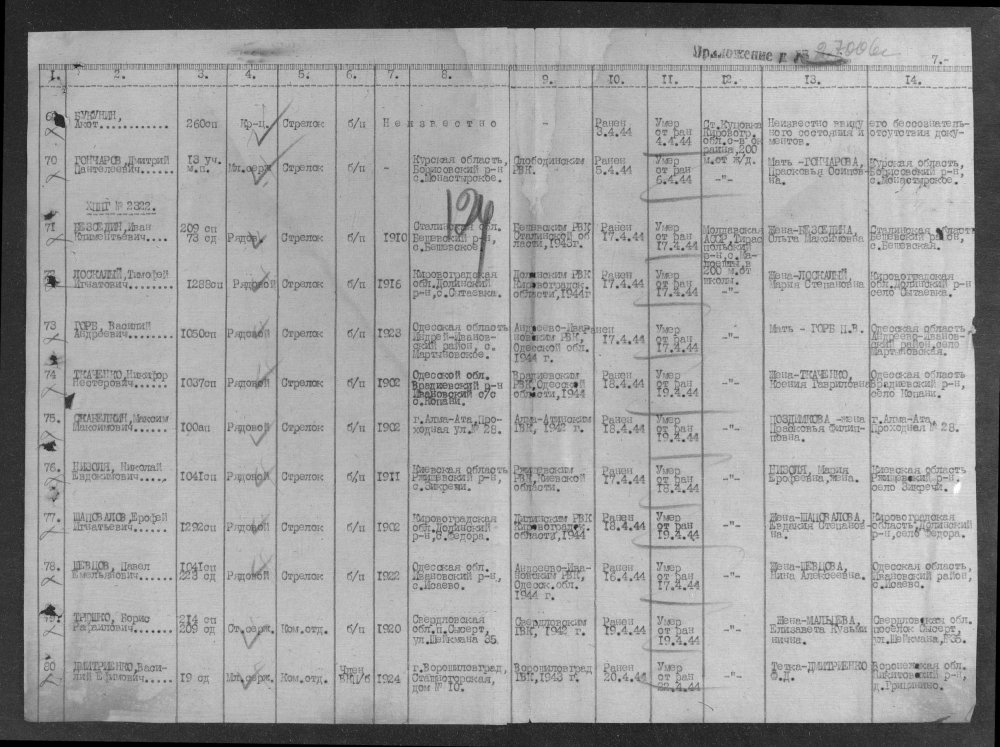 Приложение к № 27006с
7.-
1. 2. 3. 4. 5. 6. 7. 8. 9. 10. 11. 12. 13. 14.
69 БУКУНИН, 260сп Кр-ц. Стрелок б/п Неизвестно - Ранен Умер Ст.Куцовка Неизвестно ввиду его бессознатель-
............ 3.4.44 от ран Кировогр. ного состояния и отсутствия доку-
4.4.44 обл. ментов.
70 ГОНЧАРОВ, Дмитрий 13 уч. Мл.серж. Стрелок б/п - Курская область, Слободинским Ранен Умер -"- Мать -ГОНЧАРОВА, Курская область,
Пантелеевич..... м.п. Борисовский р-н РВК. 5.4.44 от ран Прасковья Осипов- Борисовский р-н,
с.Монастырское. 6.4.44 на. с.Монастырское.
ХППГ № 2322.
124
71 БЕЗСЕДИН,Иван 209 сп Рядов. Стрелок б/п 1910 Сталинская обл. Бешевским РВК Ранен Умер Молдавская Жена-БЕЗСЕДИНА, Сталинская область
Климентьевич.... 73 сд Бешевский р-н, Сталинской об 17.4.44 от ран АССР, Тирас Ольга Максимовна Бешевский район,
с.Бешевское. ласти,1943г. 17.4.44 польский с.Бешевская.
р-н,
200 м.от
школы.
72 ЛОСКАЛЫЙ,Тимофей 1288сп Рядовой Стрелок б/п 1916 Кировоградская Долинским РВК Ранен Умер -"- Жена-ЛОСКАЛЫЙ, Кировоградская
Игнатович...... обл.Долинский Кировоградск. 17.4.44 от ран Мария Степановна обл.Долинский р-н
р-н,с.Сытаевка. области,1944г 17.4.44 село Сытаевка.
73 ГОРБ, Василий 1050сп Рядовой Стрелок б/п 1923 Одесская область Андреево-Ива- Ранен Умер -"- Мать - ГОРБ Н.В. Одесская область,
Андреевич....... Андрей-Иванов- новским РВК, 17.4.44 от ран Андреево-Иванов-
ский район, с. Одесской обл. 17.4.44 ский район,село
Мартыновское. 1944 г. Мартыновская.
74 ТКАЧЕНКО,Никифор 1037сп Рядовой Стрелок б/п 1902 Одесской обл. Врадиевским Ранен Умер -"- Жена-ТКАЧЕНКО, Одесская область
Нестерович...... Врадиевский р-н РВК,Одесской 18.4.44 от ран Ксения Гавриловна Врадиевский р-н,
Ивановский с/с области,1944 19.4.44 село Копани.
с.Копани.
75. Максим 100ап Рядовой Стрелок б/п 1902 г.Алма-Ата,Про- Алма-Атинским Ранен Умер -"- ПОЗДНЯКОВА -жена г.Алма-Ата,
Максимович...... ходная ул.№ 28. ГВК, 1942 г. 18.4.44 от ран Прасковья Филип- Проходная № 28.
19.4.44 повна.
76. НИЗОЛЯ, Николай 1041сп Рядовой Стрелок б/п 1911 Киевская область Ржищевским Ранен Умер -"- НИЗОЛЯ, Мария Киевская область
Евдокимович..... Ржищевский р-н, РВК,Киевской 17.4.44 от ран Ерофеевна,жена. Ржищевский р-н,
с.Зикрачи. области. 18.4.44 село Зикрачи.
77. ШАПОВАЛОВ,Ерофей 1292сп Рядовой Стрелок б/п 1902 Кировоградская РВК Ранен Умер -"- Жена-ШАПОВАЛОВА, Кировоградская
Игнатьевич...... обл.Долинский Кировоградск. 18.4.44 от ран Евдокия Степанов- область,Долинский
р-н,с.Федора. области,1944 19.4.44 на. р-н,село Федора.
78. ШЕВЦОВ, Павел 1041сп Рядовой Стрелок б/п 1922 Одесская обл. Андреево-Ива- Ранен Умер -"- Жена-ШЕВЦОВА, Одесская область,
Емельянович..... 223 сд Ивановский р-н, новским РВК, 16.4.44 от ран Нина Алексеевна. Ивановский район,
с.Исаево. Одесск.обл. 17.4.44 с.Исаево.
1944 г.
79. ТРИШКО, Борис 214 сп Ст.серж. Ком.отд. б/п 1920 Свердловская Свердловским Ранен Умер -"- Жена-МАЛЬЦЕВА, Свердловская обл.
Рафаилович...... 209 сд обл.п.Сысерт, ГВК, 1942 г. 19.4.44 от ран Елизавета Кузьми поселок Сысерт,
ул.Шейкмана 35. 19.4.44 нична. ул.Шейкмана,№35.
80 ДМИТРИЕНКО,Васи- 19 сд Мл.серж. Ком.отд. Член 1924 г.Ворошиловград, Ворошиловград Ранен Умер -"- Тетка-ДМИТРИЕНКО Воронежская обл.
лий Ефимович..... дом № 10. ГВК,1943 г. 20.4.44 от ран Ф.Д. Никитовский р-н,
22.4.44